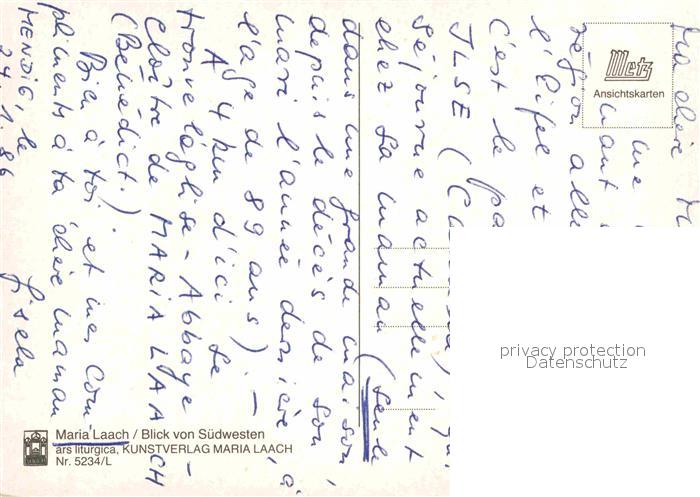 Ma chère
une
région
l'Eifel et
C'est le
JLSE (
séjourne actuellement
chez sa maman (seule
dans une grande maison
depuis le décès de son
mari l'année dernière, à
l'age de 89 ans). —
A 4 km d'ici se
trouve l'église-Abbaye
Cloître de MARIA LAACH
(Bénédict.). —
Bien à toi et mes com-
pliments à ta chère maman
MENDIG, le
24.1.86
Gisela
Metz
Ansichtskarten
privacy protection
Datenschutz
Maria Laach / Blick von Südwesten
ars liturgica, KUNSTVERLAG MARIA LAACH
Nr. 5234/L